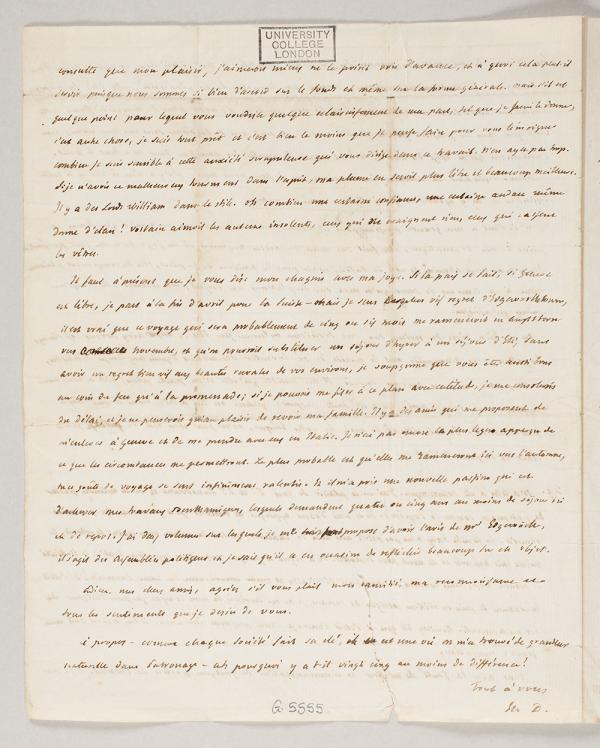 UNIVERSITY
COLLEGE
LONDON
consulte que mon plaisir, j'aimerois mieux ne le point voir d'avance, et à quoi cela peut-il
servir puisque nous sommes si bien d'accord sur le fonds et même sur la forme générale. mais s'il est
quelque point pour lequel vous voudriez quelque eclaircissement de ma part,
c'est autre chose, je suis tout prêt et c'est bien le moins que je puisse faire pour vous témoigner
combien je suis sensible à cette anxiété scrupuleuse qui vous dirige dans ce travail. n'en ayez pas trop.
Si je n'avois ce malheureux tourment dans l'esprit, ma plume en seroit plus libre et beaucoup meilleure.
Il y a des Lords William dans le stile. oh combien une certaine confiance, une certaine audace même
donne d'élan! Voltaire aimoit les auteurs insolents, ceux qui ne craignent rien, ceux qui
les vôtres.
Il faut à présent que je vous dise mon chagrin avec ma joye. Si la paix se fait, si Geneve
est libre, je pars à la fin d'avril pour la Suisse - mais je sens un vif regret d'Edgeworthtown,
il est vrai que ce voyage qui sera probablement de cinq ou six mois me rameneroit en angleterre
vers novembre, et qu'on pourroit substituer un séjour d'hyver à un séjour d'Eté, sans
avoir un regret bien vif aux beautés rurales de vos environs, je soupçonne que vous êtes aussi bons
au coin du feu qu'à la promenade; si je pouvois me fixer à ce plan avec certitude, je me consolerois
du délai, et je ne penserois qu'au plaisir de revoir ma famille. Il y a des amis qui me proposent de
à Geneve et de me prendre avec eux en Italie. Je n'ai pas encore la plus legere apperçu de
ce que les circonstances me permettront. Le plus probable est qu'elles me rameneront ici vers l'automne,
mes goûts de voyage se sont infiniment ralentis. Il m'a pris une nouvelle passion qui est
d'achever mes travaux Benthamiques, lesquels demandent quatre ou cinq ans au moins de séjour ici
et de repos. J'ai deux volumes sur lesquels je me propose d'avoir l'avis de Mr Edgeworth,
il s'agit des assemblées politiques et je sais qu'il a eu occasion de reflechir beaucoup sur cet objet.
Adieu mes chers amis, agréez s'il vous plait mon amitié, ma reconnoissance et
tous les sentiments que je desire de vous.
à propos - comme chaque société fait sa clé, est une vie on m'a trouvé de grandeur
naturelle dans Patronage - eh pourquoi y a-t-il vingt cinq ans moins de différence!
Tout à vous
Et. D.
G. 5555